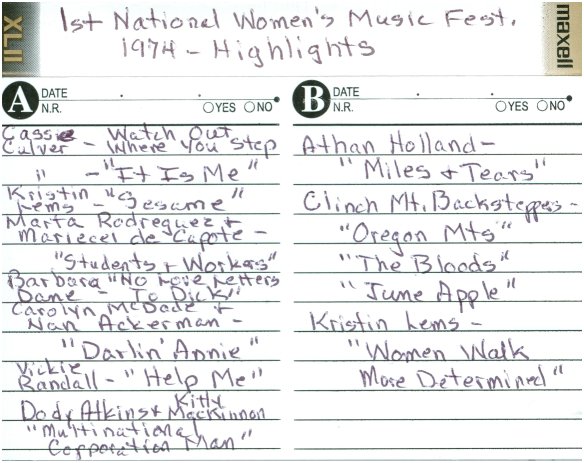 1st National Women's Music Fest.
1974 - Highlights
XLII
maxell
A DATE . .
N.R. YES NO
Cassie - Watch Out
Culver - Where You Step
" - "It Is Me"
Kristin "Sesame"
Lems -
Marta Rodreguez +
Mariecel de Capote -
"Students + Workers"
Barbara "No More Letters
Dane - To Dick"
Carolyn McDade +
Nan Ackerman -
"Darlin' Annie"
Vickie
Randall - "Help Me"
Dody Atkins + Kitty MacKinnon
"Multinational
Corporation Man"
B DATE . .
N.R. YES NO
Athan Holland -
"Miles + Tears"
Clinch Mt. Backsteppers -
"Oregon Mts"
"The Bloods"
"June Apple"
Kristin Lems -
"Women Walk
More Determined"